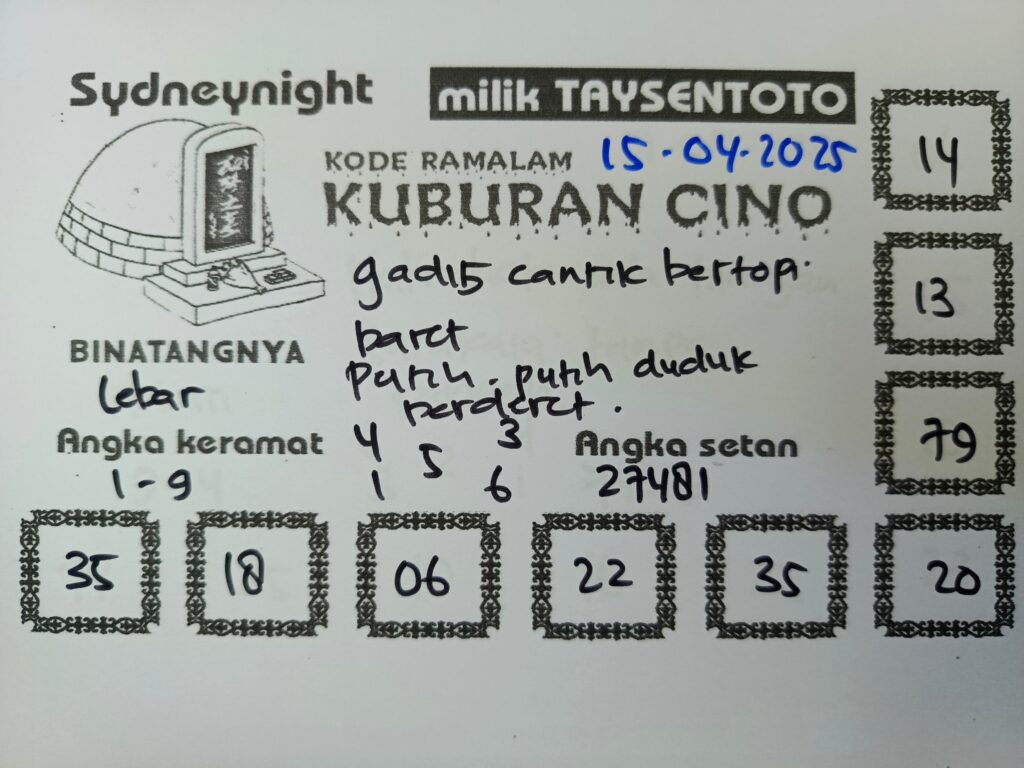 Sydneynight
milik TAYSENTOTO
KODE RAMALAM 15-04-2025
KUBURAN CINO
gadis cantik bertopi
baret
putih. putih duduk
berderet.
BINATANGNYA
Lebar
Angka keramat
1-9
4 3
5
1 6
Angka setan
27481
14
13
79
35 18 06 22 35 20